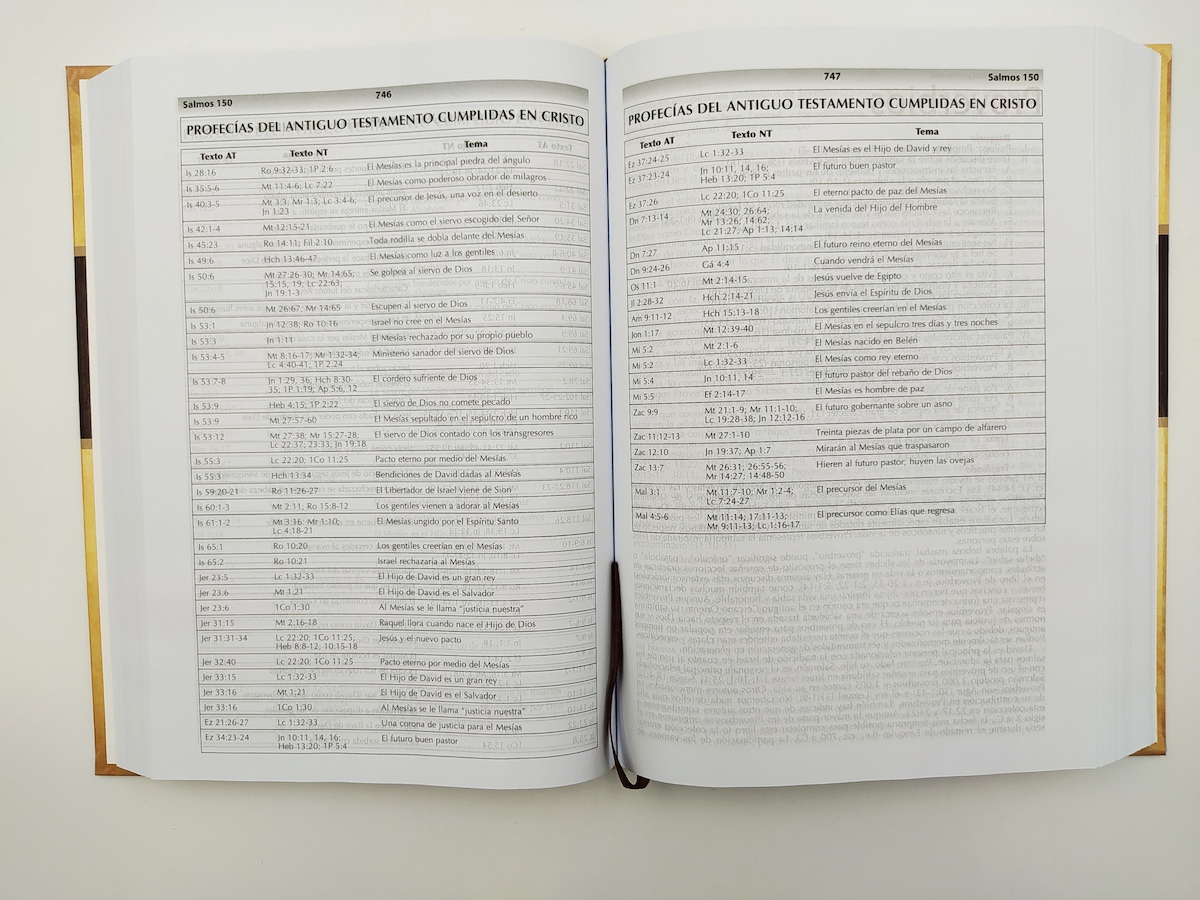 Salmos 150 746
PROFECÍAS DEL ANTIGUO TESTAMENTO CUMPLIDAS EN CRISTO
Texto AT Texto NT Tema
Is 28:16 Ro 9:32-33; 1P 2:6 El Mesías es la principal piedra del ángulo
Is 35:5-6 Mt 11:4-6; Lc 7:22 El Mesías como poderoso obrador de milagros
Is 40:3-5 Mt 3:3; Mr 1:3; Lc 3:4-6; El precursor de Jesús, una voz en el desierto
Jn 1:23
Is 42:1-4 Mt 12:15-21 El Mesías como el siervo escogido del Señor
Is 45:23 Ro 14:11; Fil 2:10 Toda rodilla se dobla delante del Mesías
Is 49:6 Hch 13:46-47 El Mesías como luz a los gentiles
Is 50:6 Mt 27:26-30; Mr 14:65; Se golpea al siervo de Dios
15:15, 19; Lc 22:63;
Jn 19:1-3
Is 50:6 Mt 26:67; Mr 14:65 Escupen al siervo de Dios
Is 53:1 Jn 12:38; Ro 10:16 Israel no cree en el Mesías
Is 53:3 Jn 1:11 El Mesías rechazado por su propio pueblo
Is 53:4-5 Mt 8:16-17; Mr 1:32-34; Ministerio sanador del siervo de Dios
Lc 4:40-41; 1P 2:24
Is 53:7-8 Jn 1:29, 36; Hch 8:30- El cordero sufriente de Dios
35; 1P 1:19; Ap 5:6, 12
Is 53:9 Heb 4:15; 1P 2:22 El siervo de Dios no comete pecado
Is 53:9 Mt 27:57-60 El Mesías sepultado en el sepulcro de un hombre rico
Is 53:12 Mt 27:38; Mr 15:27-28; El siervo de Dios contado con los transgresores
Lc 22:37; 23:33; Jn 19:18
Is 55:3 Lc 22:20; 1Co 11:25 Pacto eterno por medio del Mesías
Is 55:3 Hch 13:34 Bendiciones de David dadas al Mesías
Is 59:20-21 Ro 11:26-27 El Libertador de Israel viene de Sion
Is 60:1-3 Mt 2:11; Ro 15:8-12 Los gentiles vienen a adorar al Mesías
Is 61:1-2 Mt 3:16; Mr 1:10; El Mesías ungido por el Espíritu Santo
Lc 4:18-21
Is 65:1 Ro 10:20 Los gentiles creerían en el Mesías
Is 65:2 Ro 10:21 Israel rechazaría al Mesías
Jer 23:5 Lc 1:32-33 El Hijo de David es un gran rey
Jer 23:6 Mt 1:21 El Hijo de David es el Salvador
Jer 23:6 1Co 1:30 Al Mesías se le llama "justicia nuestra"
Jer 31:15 Mt 2:16-18 Raquel llora cuando nace el Hijo de Dios
Jer 31:31-34 Lc 22:20; 1Co 11:25; Jesús y el nuevo pacto
Heb 8:8-12; 10:15-18
Jer 32:40 Lc 22:20; 1Co 11:25 Pacto eterno por medio del Mesías
Jer 33:15 Lc 1:32-33 El Hijo de David es un gran rey
Jer 33:16 Mt 1:21 El Hijo de David es el Salvador
Jer 33:16 1Co 1:30 Al Mesías se le llama "justicia nuestra"
Ez 21:26-27 Lc 1:32-33 Una corona de justicia para el Mesías
Ez 34:23-24 Jn 10:11, 14, 16; El futuro buen pastor
Heb 13:20; 1P 5:4
747 Salmos 150
PROFECÍAS DEL ANTIGUO TESTAMENTO CUMPLIDAS EN CRISTO
Texto AT Texto NT Tema
Ez 37:24-25 Lc 1:32-33 El Mesías es el Hijo de David y rey
Ez 37:23-24 Jn 10:11, 14, 16; El futuro buen pastor
Heb 13:20; 1P 5:4
Ez 37:26 Lc 22:20; 1Co 11:25 El eterno pacto de paz del Mesías
Dn 7:13-14 Mt 24:30; 26:64; La venida del Hijo del Hombre
Mr 13:26; 14:62;
Lc 21:27; Ap 1:13; 14:14
Dn 7:27 Ap 11:15 El futuro reino eterno del Mesías
Dn 9:24-26 Gá 4:4 Cuando vendrá el Mesías
Os 11:1 Mt 2:14-15 Jesús vuelve de Egipto
Jl 2:28-32 Hch 2:14-21 Jesús envía el Espíritu de Dios
Am 9:11-12 Hch 15:13-18 Los gentiles creerían en el Mesías
Jon 1:17 Mt 12:39-40 El Mesías en el sepulcro tres días y tres noches
Mi 5:2 Mt 2:1-6 El Mesías nacido en Belén
Mi 5:2 Lc 1:32-33 El Mesías como rey eterno
Mi 5:4 Jn 10:11, 14 El futuro pastor del rebaño de Dios
Mi 5:5 Ef 2:14-17 El Mesías es hombre de paz
Zac 9:9 Mt 21:1-9; Mr 11:1-10; El futuro gobernante sobre un asno
Lc 19:28-38; Jn 12:12-16
Zac 11:12-13 Mt 27:1-10 Treinta piezas de plata por un campo de alfarero
Zac 12:10 Jn 19:37; Ap 1:7 Mirarán al Mesías que traspasaron
Zac 13:7 Mt 26:31; 26:55-56; Hieren al futuro pastor; huyen las ovejas
Mr 14:27; 14:48-50
Mal 3:1 Mt 11:7-10; Mr 1:2-4; El precursor del Mesías
Lc 7:24-27
Mal 4:5-6 Mt 11:14; 17:11-13; El precursor como Elías que regresa
Mr 9:11-13; Lc 1:16-17